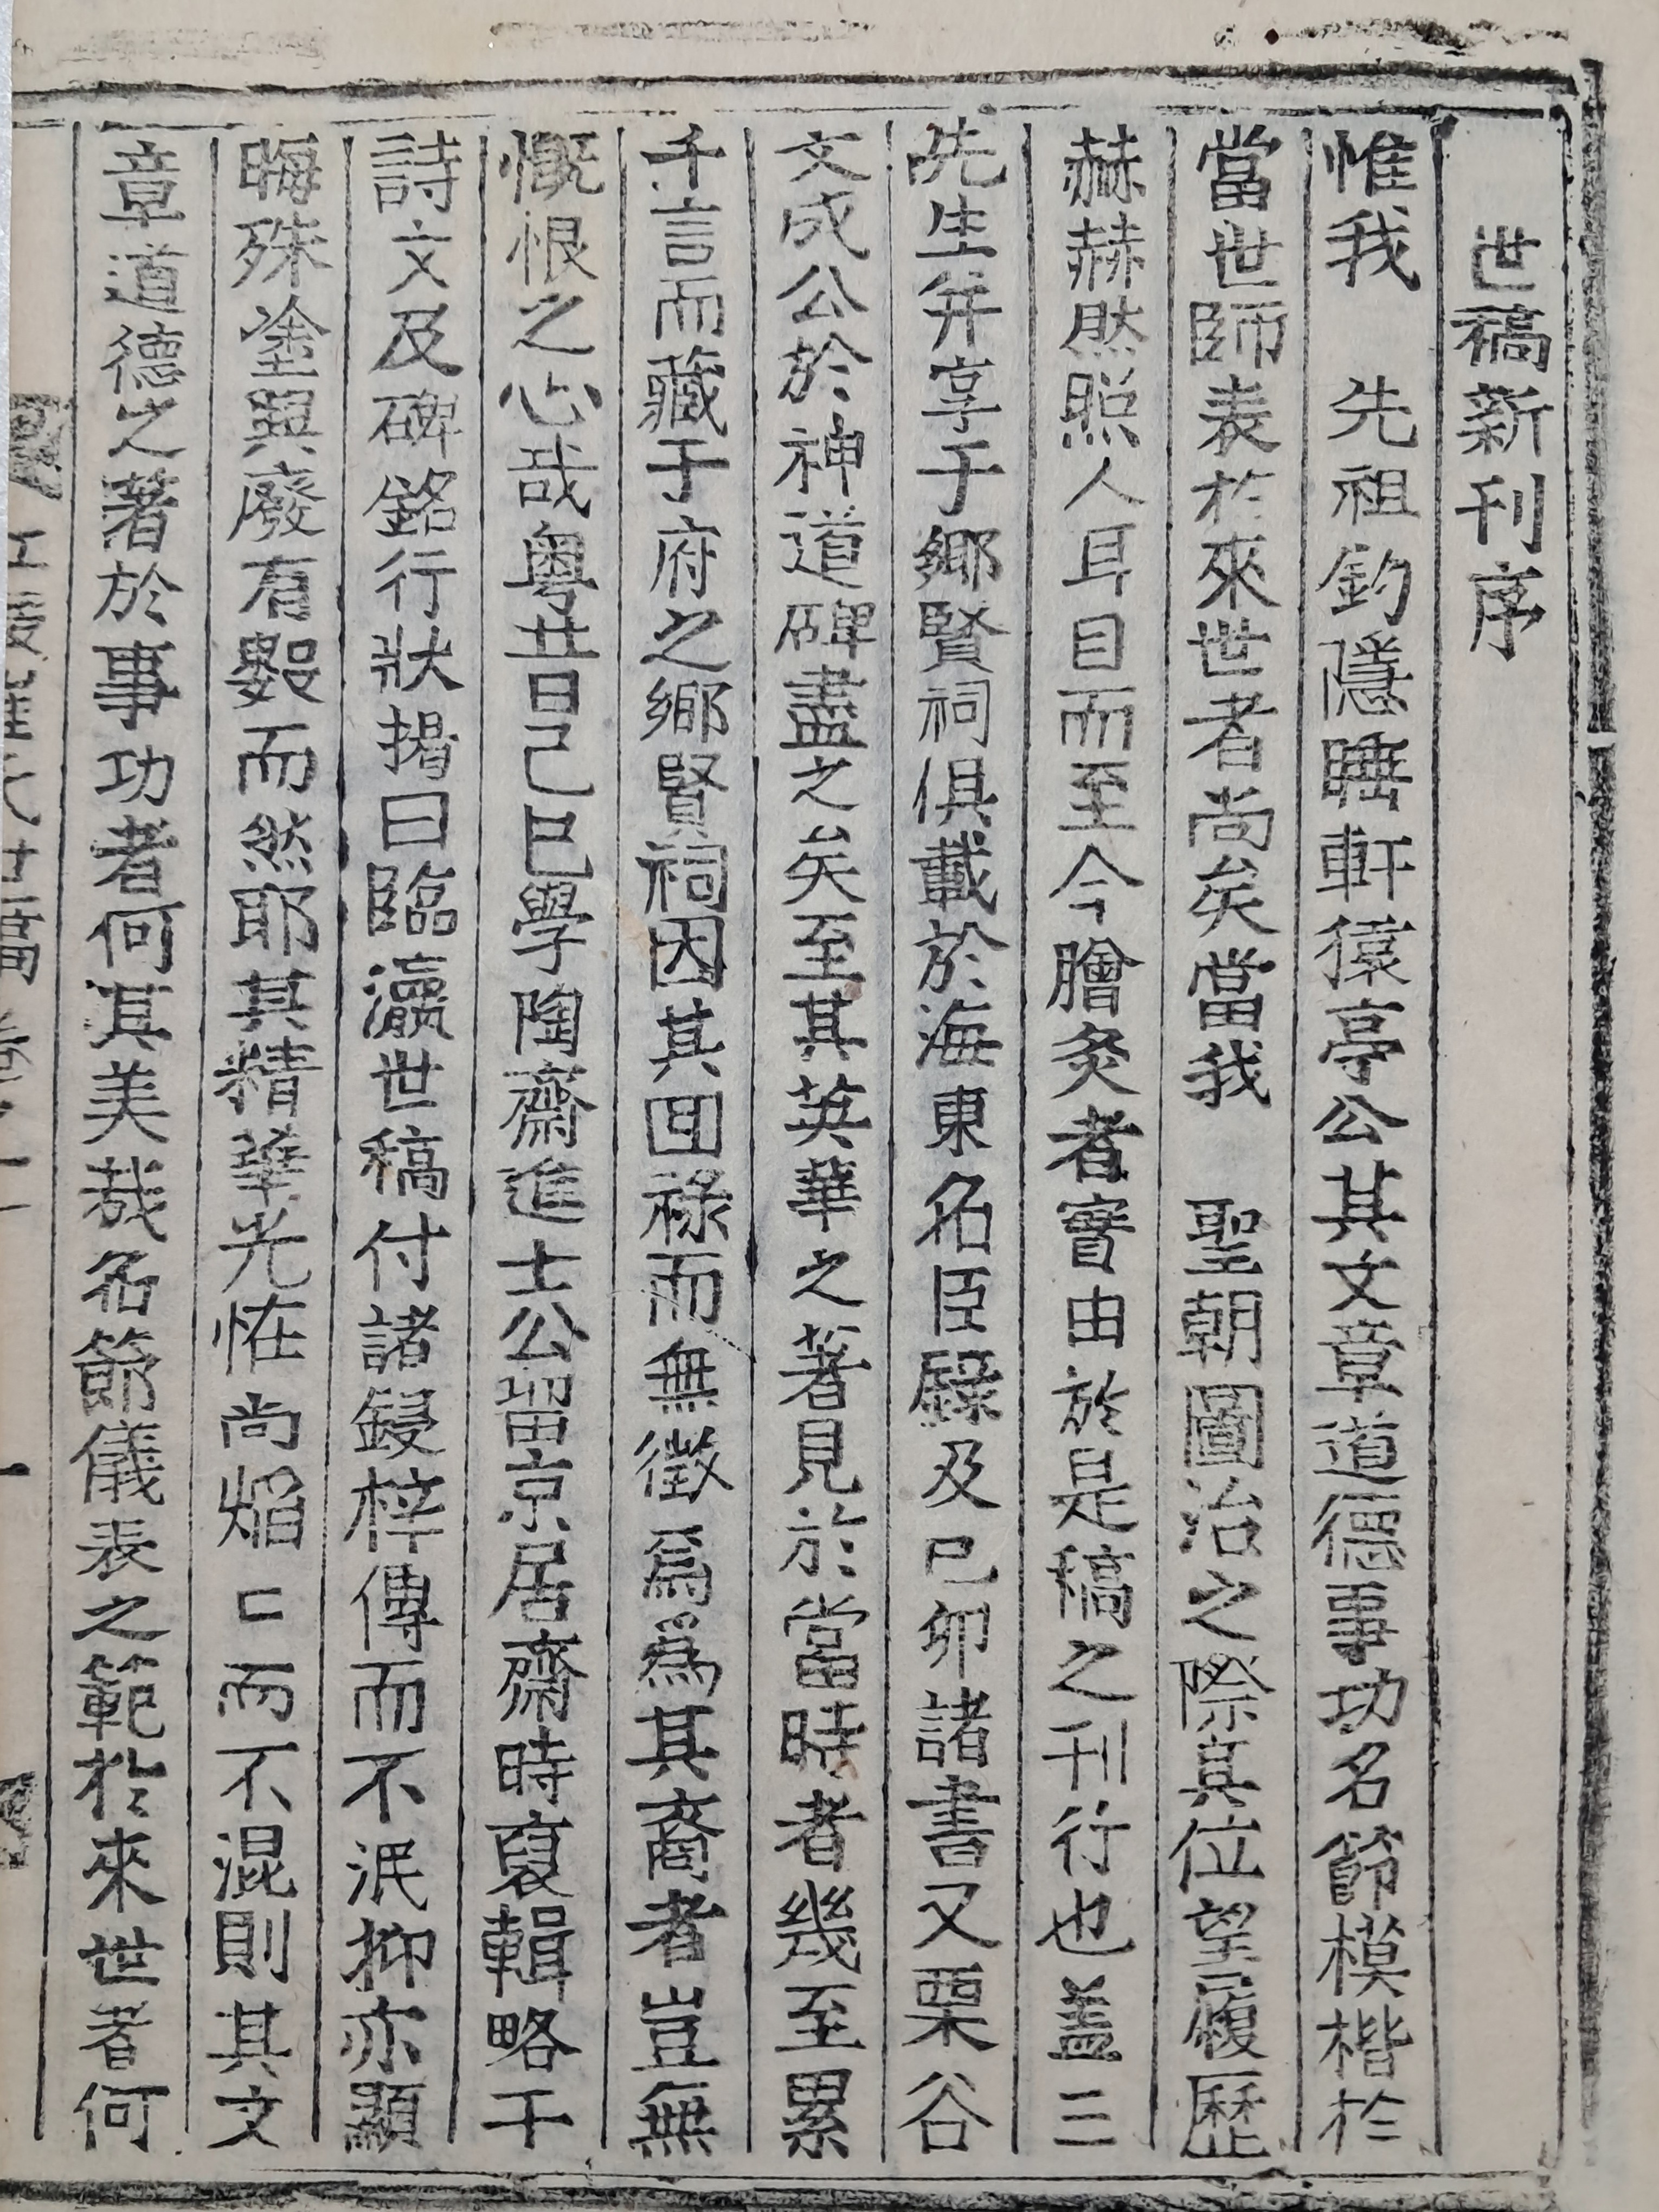 世稿新刊序
惟我　先祖釣隱睡軒猿亭公其文章道德事功名節模楷於
當世師表於來世者尚矣當我　聖朝圖治之際其位望履歷
赫赫然照人耳目而至今膾炙者實由於是稿之刊行也盖三
先生并享于鄉賢祠俱載於海東名臣錄及己卯諸書又栗谷
文成公於神道碑盡之矣至其英華之著見於當時者幾至累
千言而藏于府之鄉賢祠因其回祿而無徵焉爲其裔者豈無
慨恨之心哉粤昔己巳學陶齋進士公留京居齋時裒輯略干
詩文及碑銘行狀揭曰臨瀛世稿付諸鋟梓傳而不泯抑亦顯
晦殊塗興廢有數而然耶其精華光恠尚焰〻而不混則其文
章道德之著於事功者何其美哉名節儀表之範於來世者何